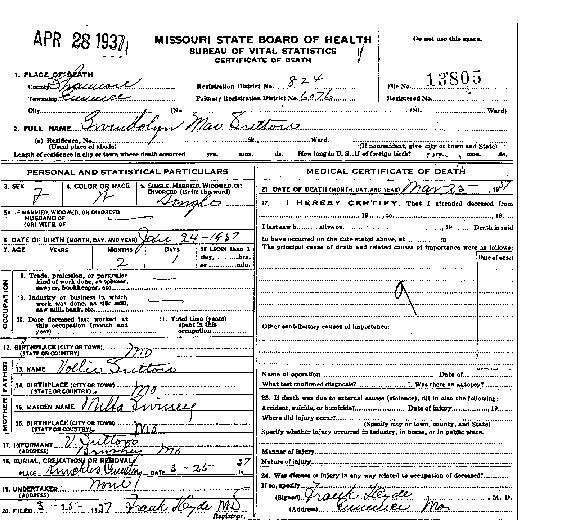 APR 28 1937
MISSOURI STATE BOARD OF HEALTH
BUREAU OF VITAL STATISTICS
CERTIFICATE OF DEATH
Do not use this space.
1. PLACE OF DEATH
County Shannon Registration District No. 824 File No. 13805
Township Eminence Primary Registration District No. 6076 Registered No.
City (No. St. Ward)
2. FULL NAME Gwendolyn Mae Suttons
(a) Residence, No. St. Ward.
(Usual place of abode) (If nonresident, give city or town and State)
Length of residence in city or town where death occurred yrs. mos. ds. How long in U. S., if of foreign birth? yrs. mos. ds.
PERSONAL AND STATISTICAL PARTICULARS
3. SEX F 4. COLOR OR RACE W 5. SINGLE, MARRIED, WIDOWED, OR DIVORCED Single
5a. IF MARRIED, WIDOWED, OR DIVORCED
HUSBAND OF
(OR) WIFE OF
6. DATE OF BIRTH (MONTH, DAY, AND YEAR) Jan 24-1937
7. AGE YEARS MONTHS DAYS If LESS than 1 day, hrs. or min.
2 1
OCCUPATION
8. Trade, profession, or particular kind of work done, as spinner, sawyer, bookkeeper, etc.
9. Industry or business in which work was done, as silk mill, saw mill, bank, etc.
10. Date deceased last worked at this occupation (month and year)
11. Total time (years) spent in this occupation
12. BIRTHPLACE (CITY OR TOWN)
(STATE OR COUNTRY) Mo
FATHER
13. NAME Vollie Suttons
14. BIRTHPLACE (CITY OR TOWN)
(STATE OR COUNTRY) Mo
MOTHER
15. MAIDEN NAME
16. BIRTHPLACE (CITY OR TOWN)
(STATE OR COUNTRY) Mo
17. INFORMANT V. Suttons
(ADDRESS) Mo
18. BURIAL, CREMATION, OR REMOVAL
PLACE DATE 3-25- 37
19. UNDERTAKER none
(ADDRESS)
20. FILED 3-25-1937 Frank Hyde MD
Registrar.
MEDICAL CERTIFICATE OF DEATH
21. DATE OF DEATH (MONTH, DAY, AND YEAR) Mar 25- 1937
22. I HEREBY CERTIFY, That I attended deceased from
19 , to , 19
I last saw h alive on , 19 Death is said
to have occurred on the date stated above, at m.
The principal cause of death and related causes of importance were as follows:
Date of onset
Other contributory causes of importance:
Name of operation Date of
What test confirmed diagnosis? Was there an autopsy?
23. If death was due to external causes (violence), fill in also the following:
Accident, suicide, or homicide? Date of injury 19
Where did injury occur?
(Specify city or town, county, and State)
Specify whether injury occurred in industry, in home, or in public place.
Manner of injury
Nature of injury
24. Was disease or injury in any way related to occupation of deceased?
If so, specify
(Signed) Frank Hyde M. D.
(Address) Eminence Mo